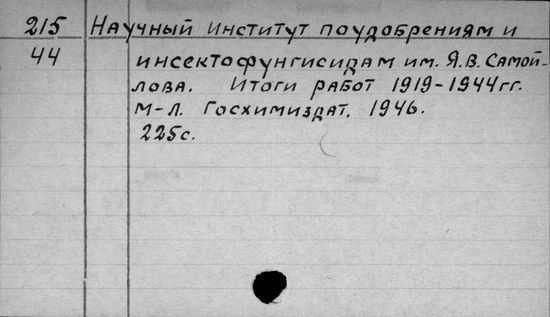 215 Научный институт поудобрениям и
44 инсектофунгисидам им. Я.В. Самой-
лова. Итоги работ 1919-1944гг.
М-Л. Госхимиздат. 1946.
225с.